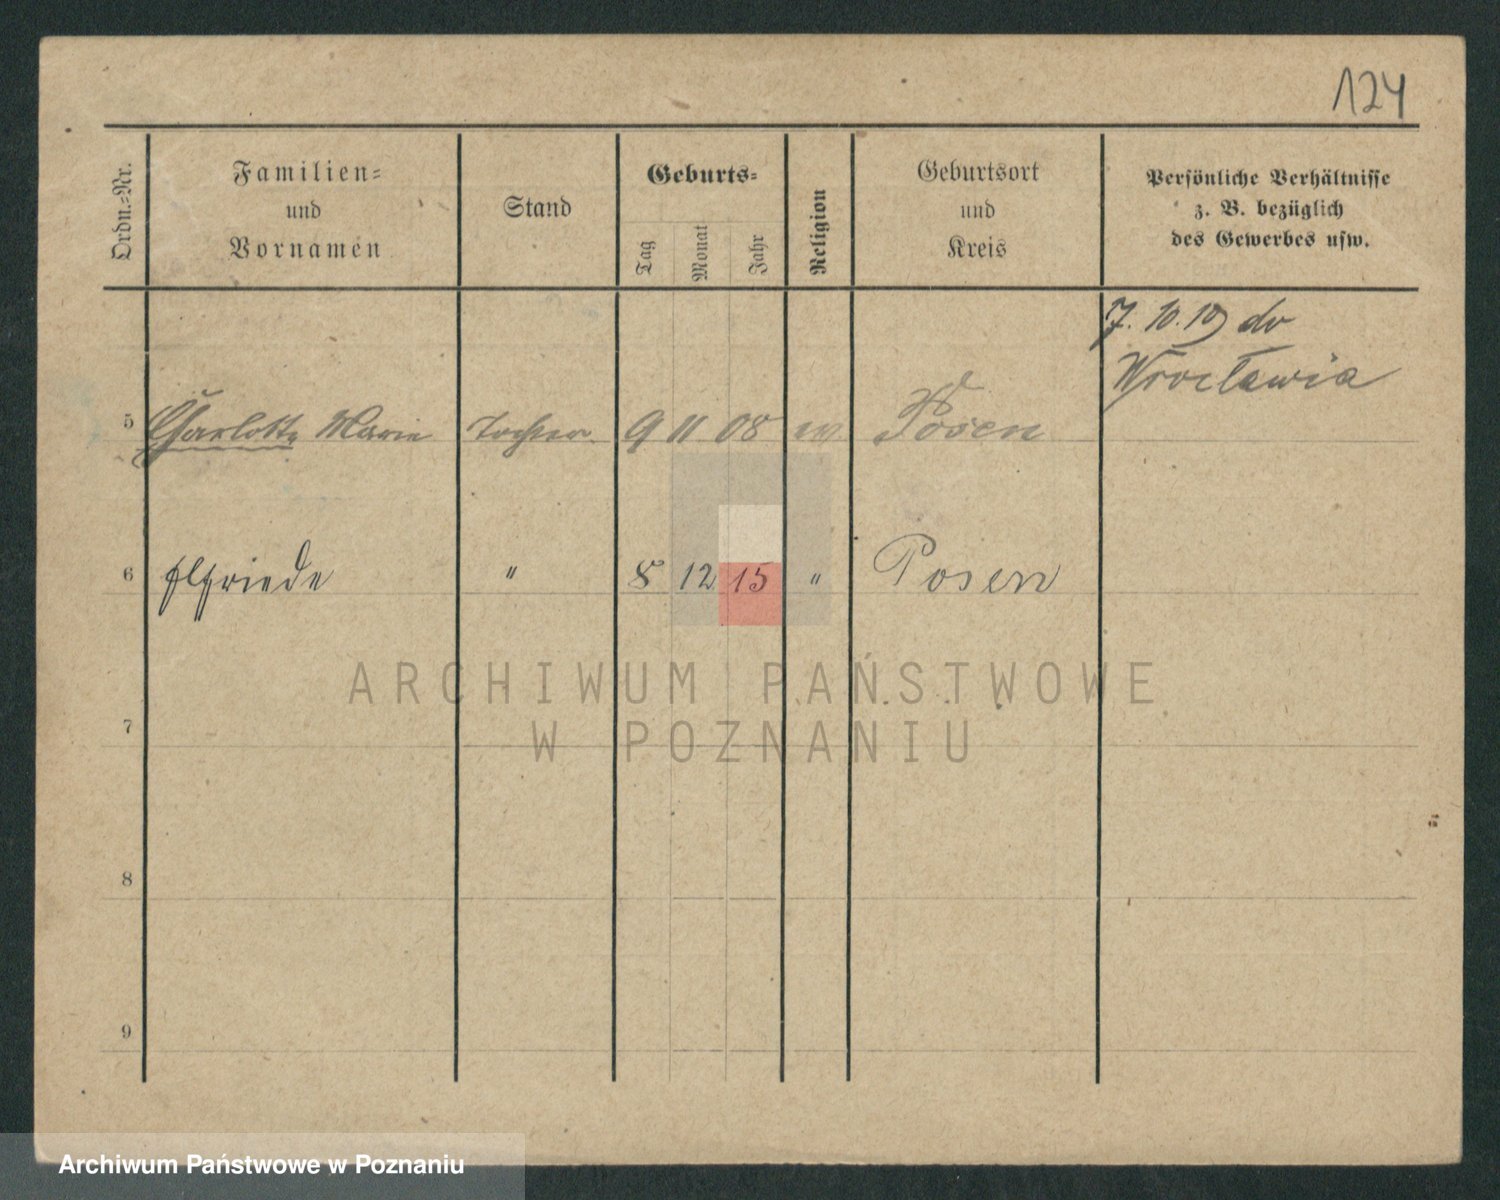 124
Ordn.=Nr.
Familien=
und
Vornamen
Stand
Geburts=
Tag
Monat
Jahr
Religion
Geburtsort
und
Kreis
Persönliche Verhältnisse
z. B. bezüglich
des Gewerbes usw.
7. 10. 19 do
Wrocławia
5 Charlotte Marie Tochter 9 11 08 ev Posen
6 Elfriede " 8 12 15 " Posen
7
8
9
ARCHIWUM PAŃSTWOWE
W POZNANIU
Archiwum Państwowe w Poznaniu